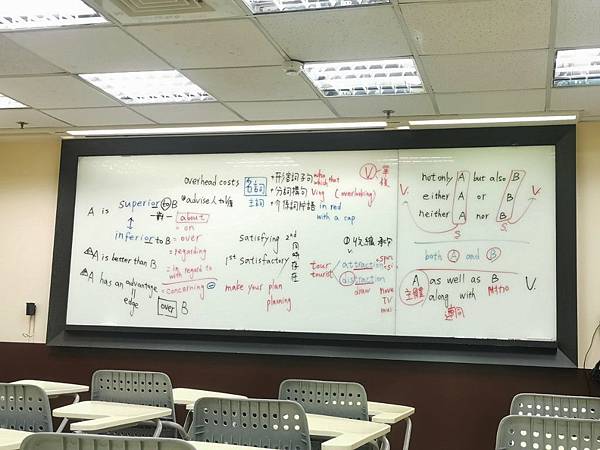 A is superior to B
inferior to B
A is better than B
A has an advantage
edge
over B
overhead costs
advise 人 of
about
= on
= over
= regarding
= in regard to
with regard to
= concerning
名詞
主詞
+形容詞子句 who
which that
+分詞構句 Ving (overlooking)
+介係詞片語 in red
with a cap
V
satisfying 2nd
1st satisfactory
同時存在
make your plan
planning
tour / attraction
tourist distraction
draw
TV
not only A but also B
either A or B
neither A nor B
V.
V.
S.
both A and B
A as well as B
主體 along with 附加
V.